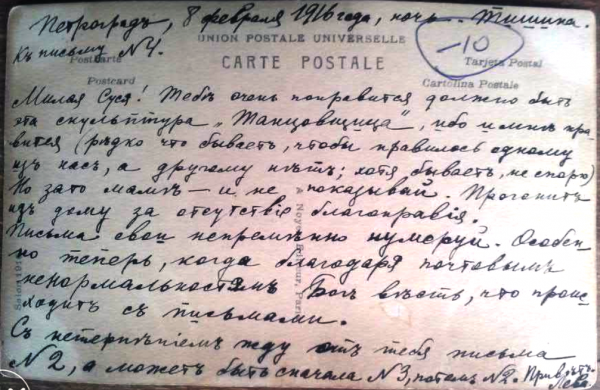 Петроградъ, 8 февраля 1916 года, ночь. Тишина.
Къ письму №4.
-10
UNION POSTALE UNIVERSELLE
CARTE POSTALE
Postkarte
Postcard
Tarjeta Postal
Cartolina Postale
Милая Суся! Тебѣ очень понравится должно быть
эта скульптура „Танцовщица", ибо и мнѣ нра-
вится (рѣдко что бываетъ, чтобы нравилось одному
изъ насъ, а другому нѣтъ; хотя бываетъ, не спорю)
Но зато мамѣ — и не показывай. Прогонитъ
изъ дому за отсутствіе благонравія.
Письма свои непремѣнно нумеруй. Особен-
но теперь, когда благодаря почтовымъ
ненормальностямъ Богъ вѣсть, что проис-
ходитъ съ письмами.
Съ нетерпѣніемъ жду отъ тебя письма
№2, а можетъ быть сначала №3, потомъ №2. Привѣтъ.
Лева